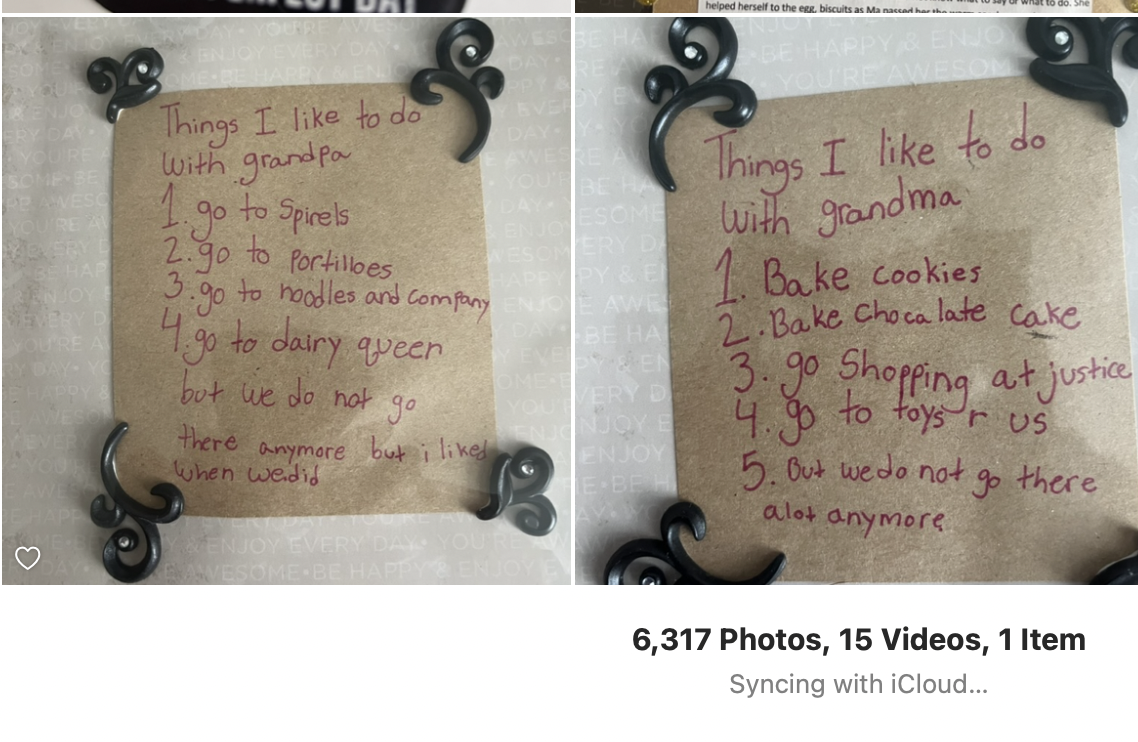 helped herself to the egg, biscuits as Ma passed her the
Things I like to do
with grandpa
1. go to Spirels
2. go to portilloes
3. go to noodles and company
4. go to dairy queen
but we do not go
there anymore but i liked
when we did
Things I like to do
with grandma
1. Bake cookies
2. Bake chocalate cake
3. go Shopping at justice
4. go to toys r us
5. But we do not go there
alot anymore
6,317 Photos, 15 Videos, 1 Item
Syncing with iCloud...